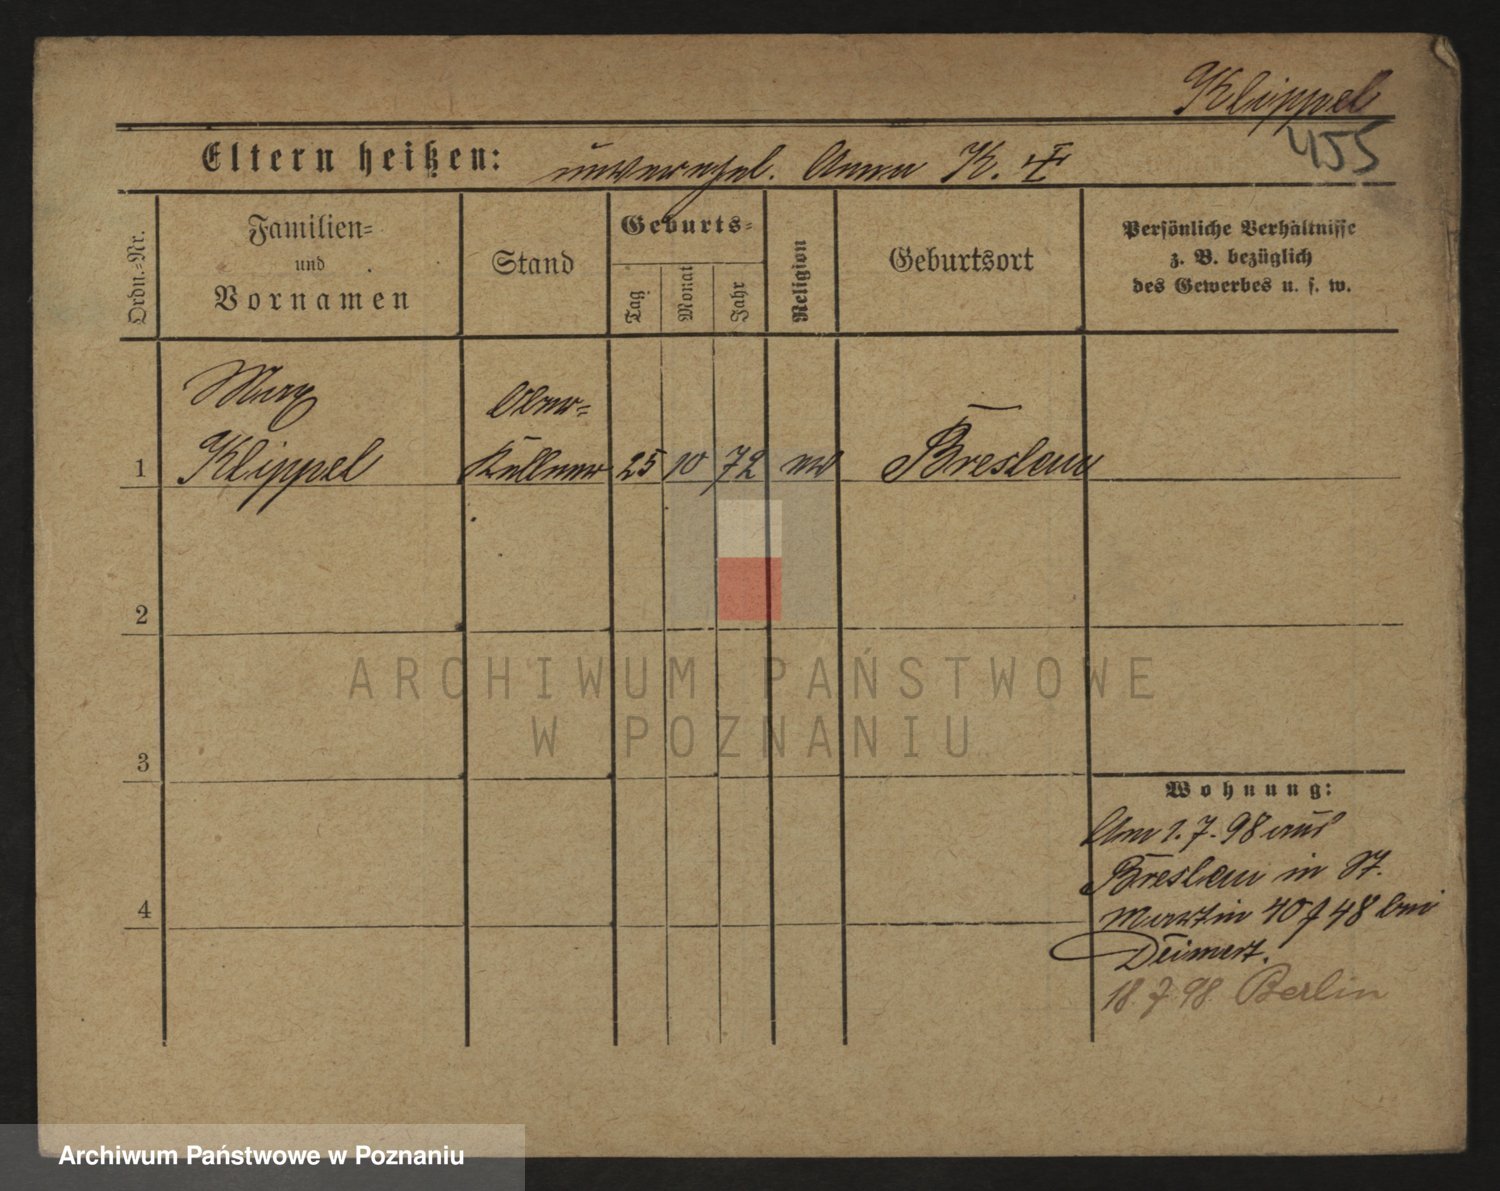 Klippel
455
Eltern heißen: unverehel. Anna K. ‡
Ordn.-Nr.
Familien-
und
Vornamen
Stand
Geburts-
Tag
Monat
Jahr
Religion
Geburtsort
Persönliche Verhältnisse
z. B. bezüglich
des Gewerbes u. s. w.
Max
Ober-
1 Klippel Kellner 25 10 72 ev Breslau
2
ARCHIWUM PAŃSTWOWE
W POZNANIU
3
Wohnung:
Am 1.7.98 aus
Breslau in St.
4
Martin 40 / 48 bei
18.7.98. Berlin
Archiwum Państwowe w Poznaniu